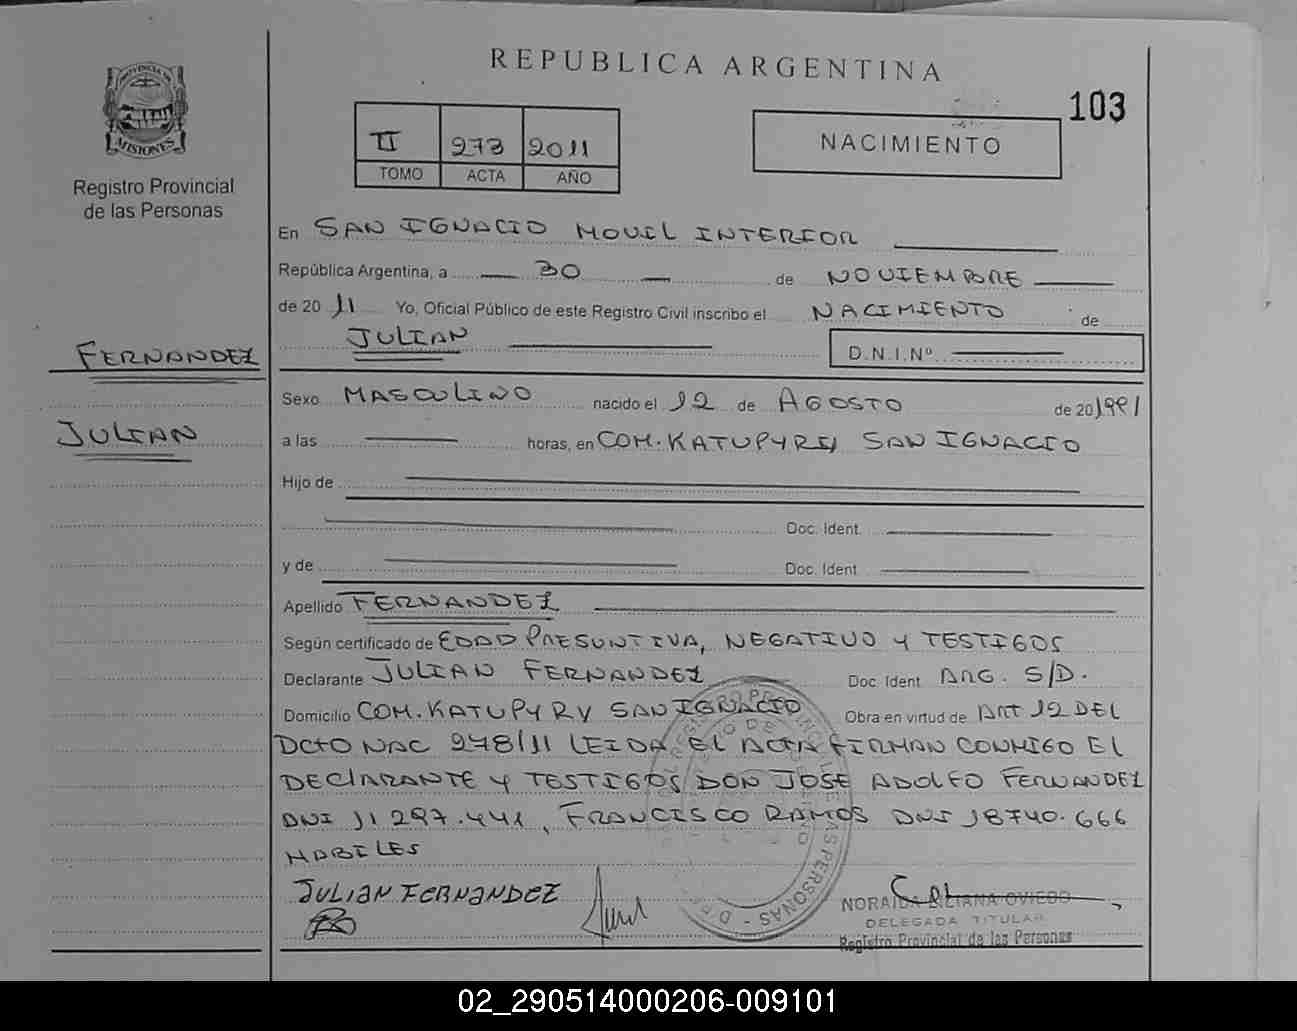 REPUBLICA ARGENTINA
103
PROVINCIA DE
MISIONES
Registro Provincial
de las Personas
II 273 2011
TOMO ACTA AÑO
NACIMIENTO
En SAN IGNACIO MOVIL INTERIOR
República Argentina, a 30 de NOVIEMBRE
de 20 11 Yo, Oficial Público de este Registro Civil inscribo el NACIMIENTO de
JULIAN D.N.I.Nº
FERNANDEZ
JULIAN
Sexo MASCULINO nacido el 12 de AGOSTO de 20 1991
a las horas, en COM. KATUPYRY SAN IGNACIO
Hijo de
Doc. Ident.
y de Doc. Ident
Apellido FERNANDEZ
Según certificado de EDAD PRESUNTIVA, NEGATIVO Y TESTIGOS
Declarante JULIAN FERNANDEZ Doc. Ident ARG. S/D.
Domicilio COM. KATUPYRY SAN IGNACIO Obra en virtud de ART 12 DEL
DCTO NAC 278/11 LEIDA EL ACTA FIRMAN CONMIGO EL
DECLARANTE Y TESTIGOS DON JOSE ADOLFO FERNANDEZ
DNI 11 297.441, FRANCISCO RAMOS DNI 18740.666
HABILES
JULIAN FERNANDEZ
NORAIDA LILIANA OVIEDO
DELEGADA TITULAR
Registro Provincial de las Personas
02_290514000206-009101